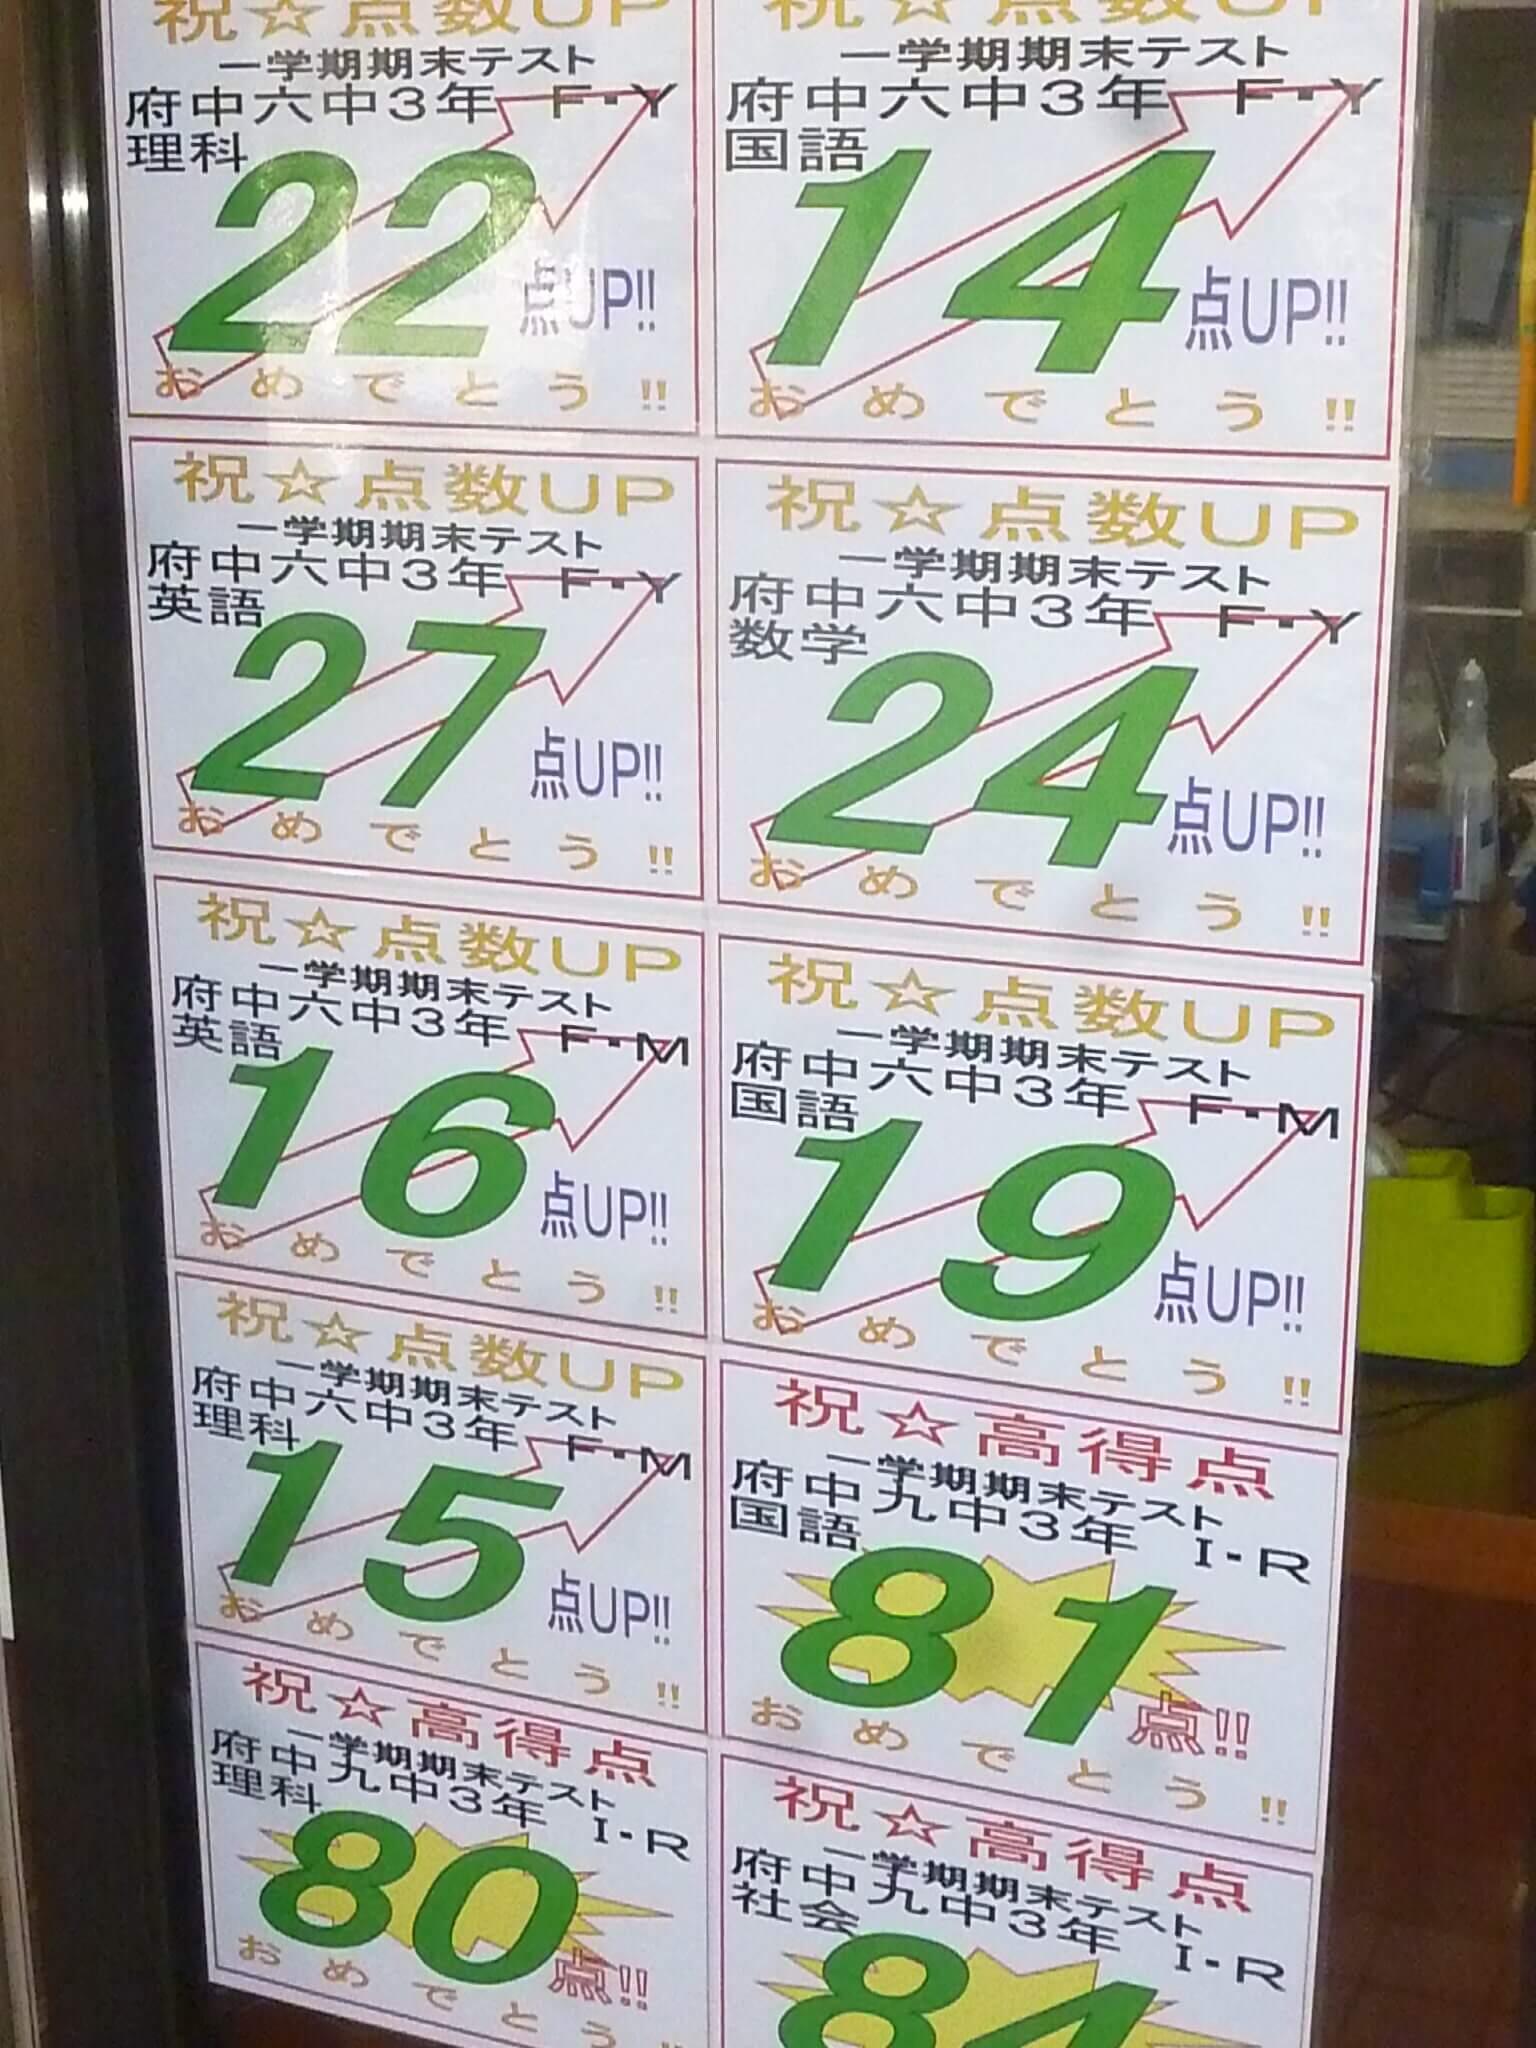 祝☆点数UP
一学期期末テスト
府中六中3年 F・Y
理科
22
点UP!!
おめでとう!!
祝☆点数UP
一学期期末テスト
府中六中3年 F・Y
国語
14
点UP!!
おめでとう!!
祝☆点数UP
一学期期末テスト
府中六中3年 F・Y
英語
27
点UP!!
おめでとう!!
祝☆点数UP
一学期期末テスト
府中六中3年 F・Y
数学
24
点UP!!
おめでとう!!
祝☆点数UP
一学期期末テスト
府中六中3年 F・M
英語
16
点UP!!
おめでとう!!
祝☆点数UP
一学期期末テスト
府中六中3年 F・M
国語
19
点UP!!
おめでとう!!
祝☆点数UP
一学期期末テスト
府中六中3年 F・M
理科
15
点UP!!
おめでとう!!
祝☆高得点
一学期期末テスト
府中九中3年 I・R
国語
81
点!!
おめでとう!!
祝☆高得点
一学期期末テスト
府中九中3年 I・R
理科
80
点!!
おめでとう!!
祝☆高得点
一学期期末テスト
府中九中3年 I・R
社会
84